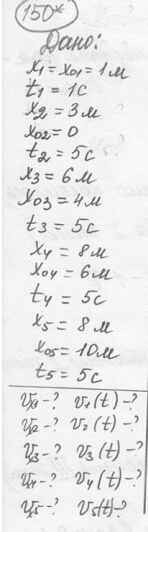 150*
Дано:
x1 = x01 = 1 м
t1 = 1 с
x2 = 3 м
x02 = 0
t2 = 5 с
x3 = 6 м
x03 = 4 м
t3 = 5 с
x4 = 8 м
x04 = 6 м
t4 = 5 с
x5 = 8 м
x05 = 10 м
t5 = 5 с
v1 - ? v1(t) - ?
v2 - ? v2(t) - ?
v3 - ? v3(t) - ?
v4 - ? v4(t) - ?
v5 - ? v5(t) - ?